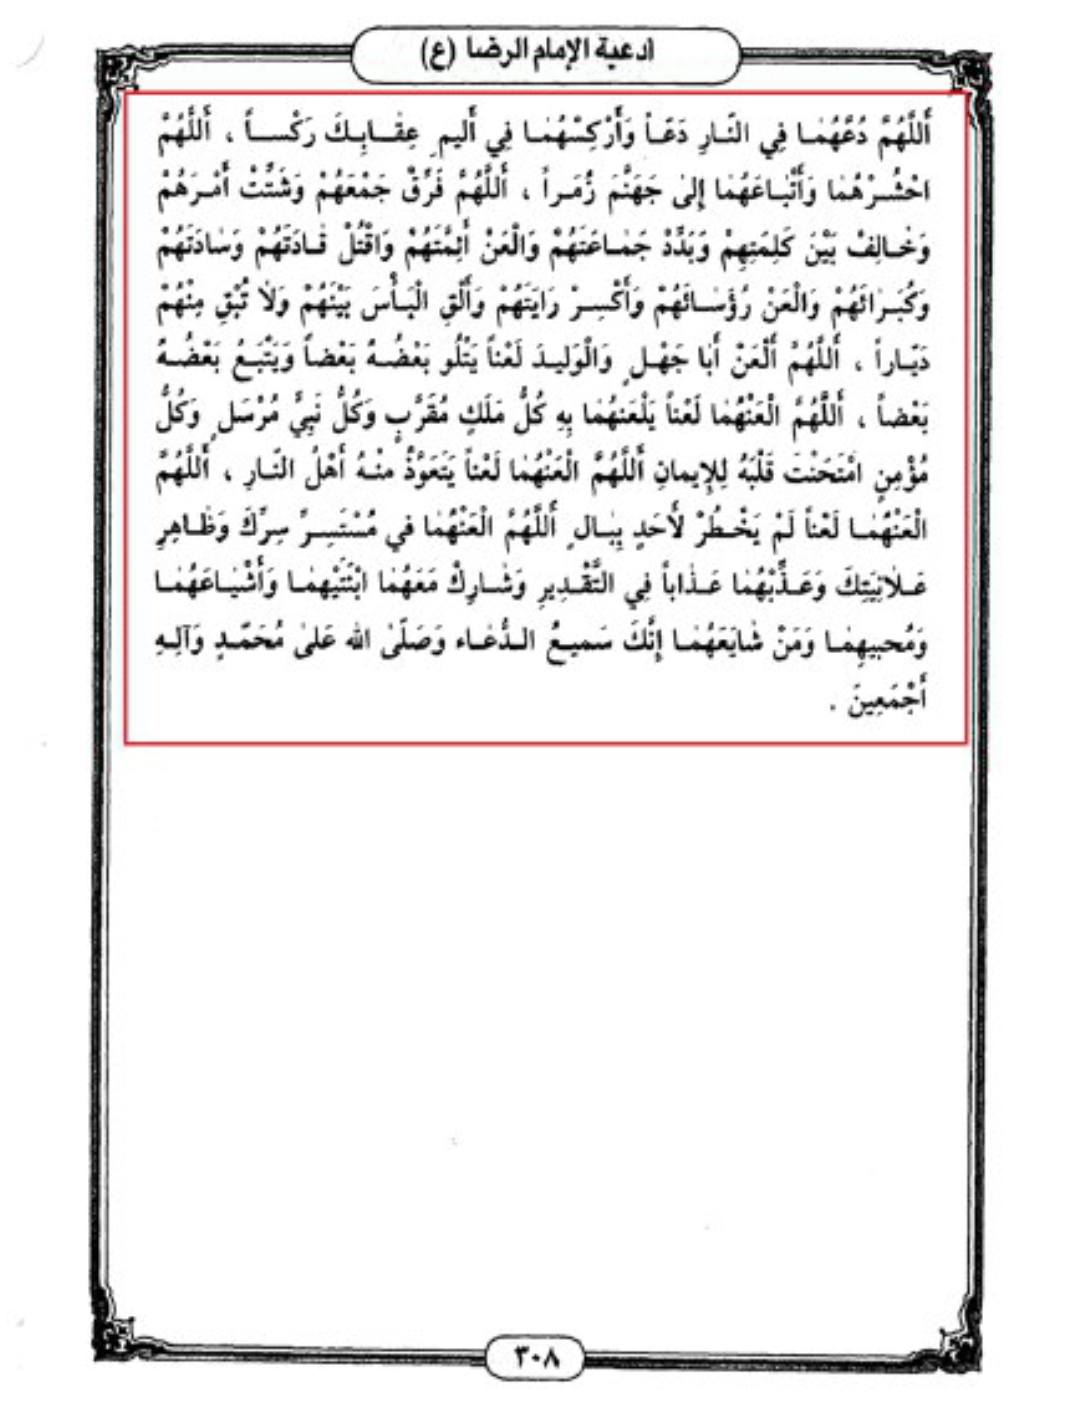 أدعية الإمام الرضا (ع)
أَللَّهُمَّ دُعَّهُمٰا فِي النّارِ دَعّاً وَأَرْكِسْهُمٰا فِي أَليمِ عِقٰابِكَ رَكْساً ، أَللَّهُمَّ
احْشُرْهُمٰا وَأَتْبٰاعَهُمٰا إِلىٰ جَهَنَّمَ زُمَراً ، أَللَّهُمَّ فَرِّقْ جَمْعَهُمْ وَشَتِّتْ أَمْرَهُمْ
وَخٰالِفْ بَيْنَ كَلِمَتِهِمْ وَبَدِّدْ جَمٰاعَتَهُمْ وَالْعَنْ أَئِمَّتَهُمْ وَاقْتُلْ قٰادَتَهُمْ وَسٰادَتَهُمْ
وَكُبَرٰائَهُمْ وَالْعَنْ رُؤَسٰائَهُمْ وَأَكْسِرْ رَايَتَهُمْ وَأَلْقِ الْبَأْسَ بَيْنَهُمْ وَلاٰ تُبْقِ مِنْهُمْ
دَيّاراً ، أَللَّهُمَّ أَلْعَنْ أَبٰا جَهْلٍ وَالْوَليدَ لَعْناً يَتْلُو بَعْضُهُ بَعْضاً وَيَتْبَعُ بَعْضُهُ
بَعْضاً ، أَللَّهُمَّ الْعَنْهُمٰا لَعْناً يَلْعَنهُمٰا بِهِ كُلُّ مَلَكٍ مُقَرَّبٍ وَكُلُّ نَبِيٍّ مُرْسَلٍ وَكُلُّ
مُؤْمِنٍ امْتَحَنْتَ قَلْبَهُ لِلإِيمانِ أَللَّهُمَّ الْعَنْهُمٰا لَعْناً يَتَعَوَّذُ منْهُ أَهْلُ النّارِ ، أَللَّهُمَّ
الْعَنْهُمٰا لَعْناً لَمْ يَخْطُرْ لأَحَدٍ بِبٰالٍ أَللَّهُمَّ الْعَنْهُمٰا في مُسْتَسِرِّ سِرِّكَ وَظٰاهِرِ
عَلاٰنِيَتِكَ وَعَذِّبْهُمٰا عَذٰاباً فِي التَّقْدِيرِ وَشٰارِكْ مَعَهُمٰا ابْنَتَيْهِمٰا وَأَشْيٰاعَهُمٰا
وَمُحبيهِمٰا وَمَنْ شٰايَعَهُمٰا إِنَّكَ سَميعُ الدُّعٰاء وَصَلّىٰ الله عَلىٰ مُحَمّدٍ وَآلِهِ
أَجْمَعِينَ .
٣٠٨